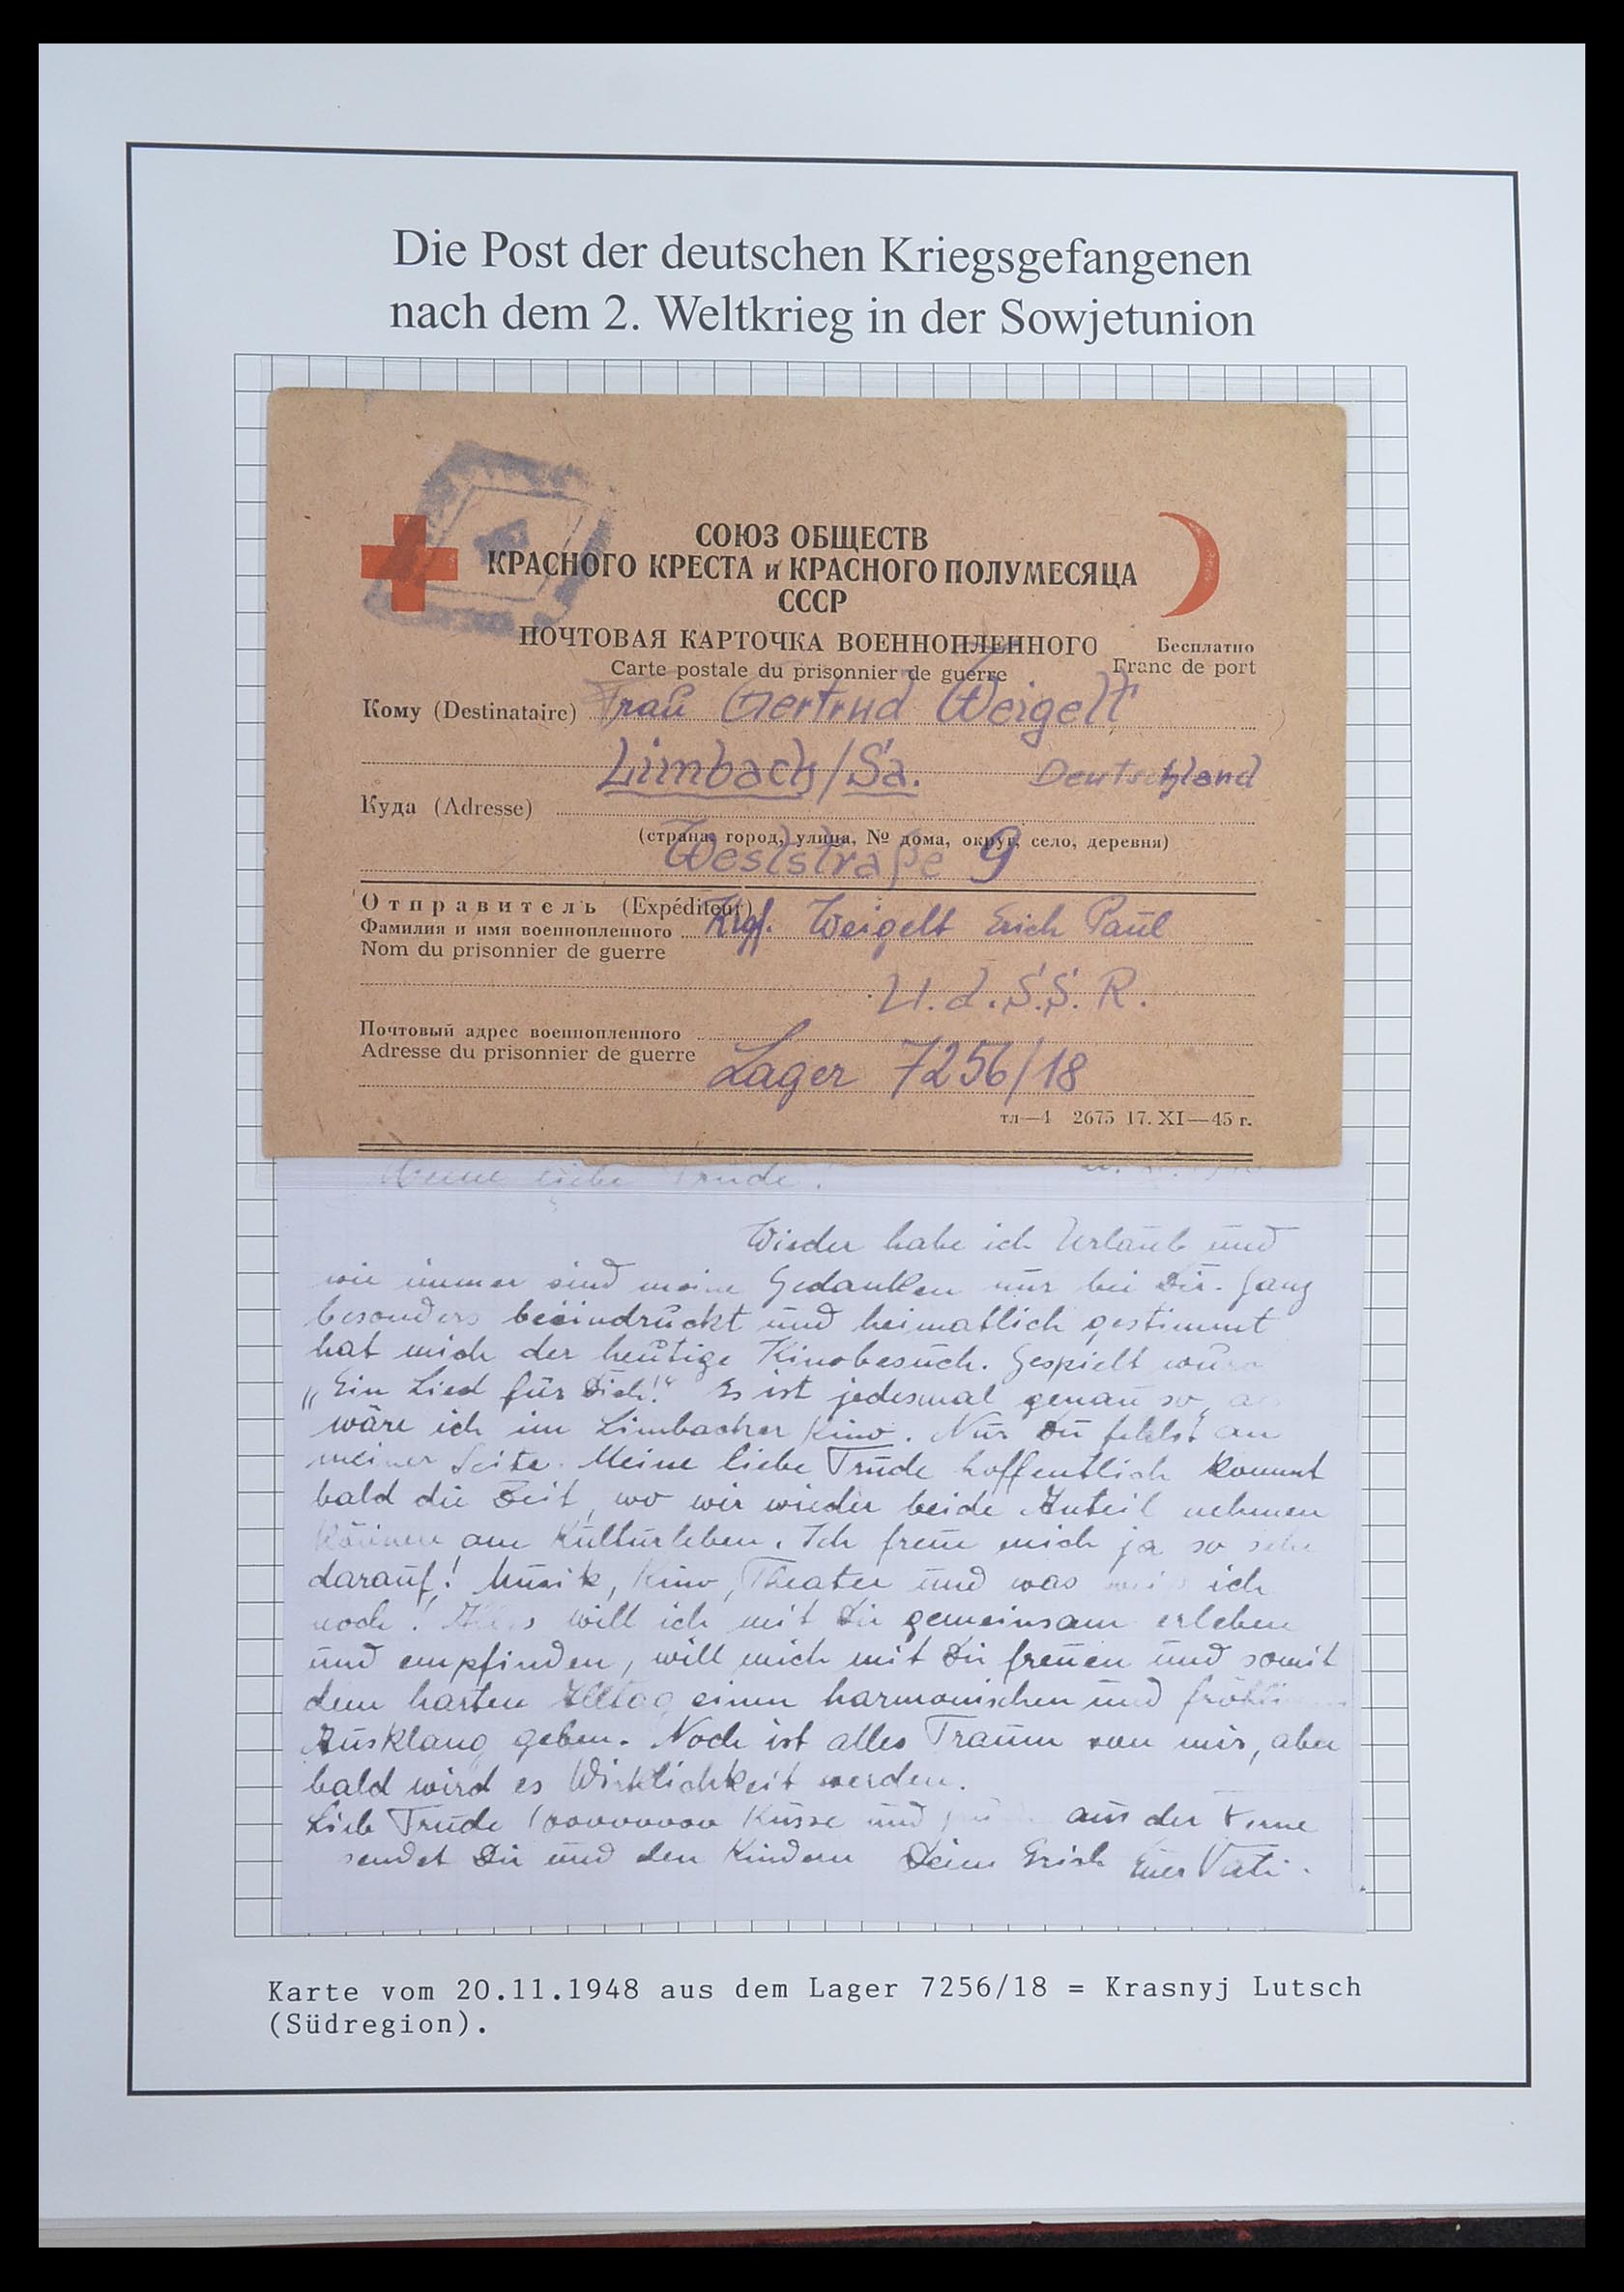 Die Post der deutschen Kriegsgefangenen
nach dem 2. Weltkrieg in der Sowjetunion
СОЮЗ ОБЩЕСТВ
КРАСНОГО КРЕСТА и КРАСНОГО ПОЛУМЕСЯЦА
СССР
ПОЧТОВАЯ КАРТОЧКА ВОЕННОПЛЕННОГО
Бесплатно
Carte postale du prisonnier de guerre
Franc de port
Кому (Destinataire) Frau Gertrud Weigelt
Limbach/Sa. Deutschland
Куда (Adresse)
(страна, город, улица, № дома, округ, село, деревня)
Weststraße 9
Отправитель (Expéditeur)
Фамилия и имя военнопленного Krgf. Weigelt Erich Paul
Nom du prisonnier de guerre
U.d.S.S.R.
Почтовый адрес военнопленного
Adresse du prisonnier de guerre
Lager 7256/18
тл—4 2675 17. XI—45 г.
Meine liebe Trude!
Wieder habe ich Urlaub und
wie immer sind meine Gedanken nur bei Dir. Ganz
besonders beeindruckt und heimatlich gestimmt
hat mich der heutige Kinobesuch. Gespielt
„Ein Lied für Dich!“ Es ist jedesmal genau so
wäre ich im Limbacher Kino. Nur Du fehlst an
meiner Seite. Meine liebe Trude hoffentlich kommt
bald die Zeit, wo wir wieder beide Anteil nehmen
können am Kulturleben. Ich freue mich ja so sehr
darauf! Musik, Kino, Theater und was weis ich
noch! Alles will ich mit Dir gemeinsam erleben
und empfinden, will mich mit Dir freuen und somit
dem harten Alltag einen harmonischen und
Ausklang geben. Noch ist alles Traum von mir, aber
bald wird es Wirklichkeit werden.
Lieb Trude Küsse und aus der Ferne
sendet Dir und den Kindern Dein Erich Euer Vati.
Karte vom 20.11.1948 aus dem Lager 7256/18 = Krasnyj Lutsch
(Südregion).